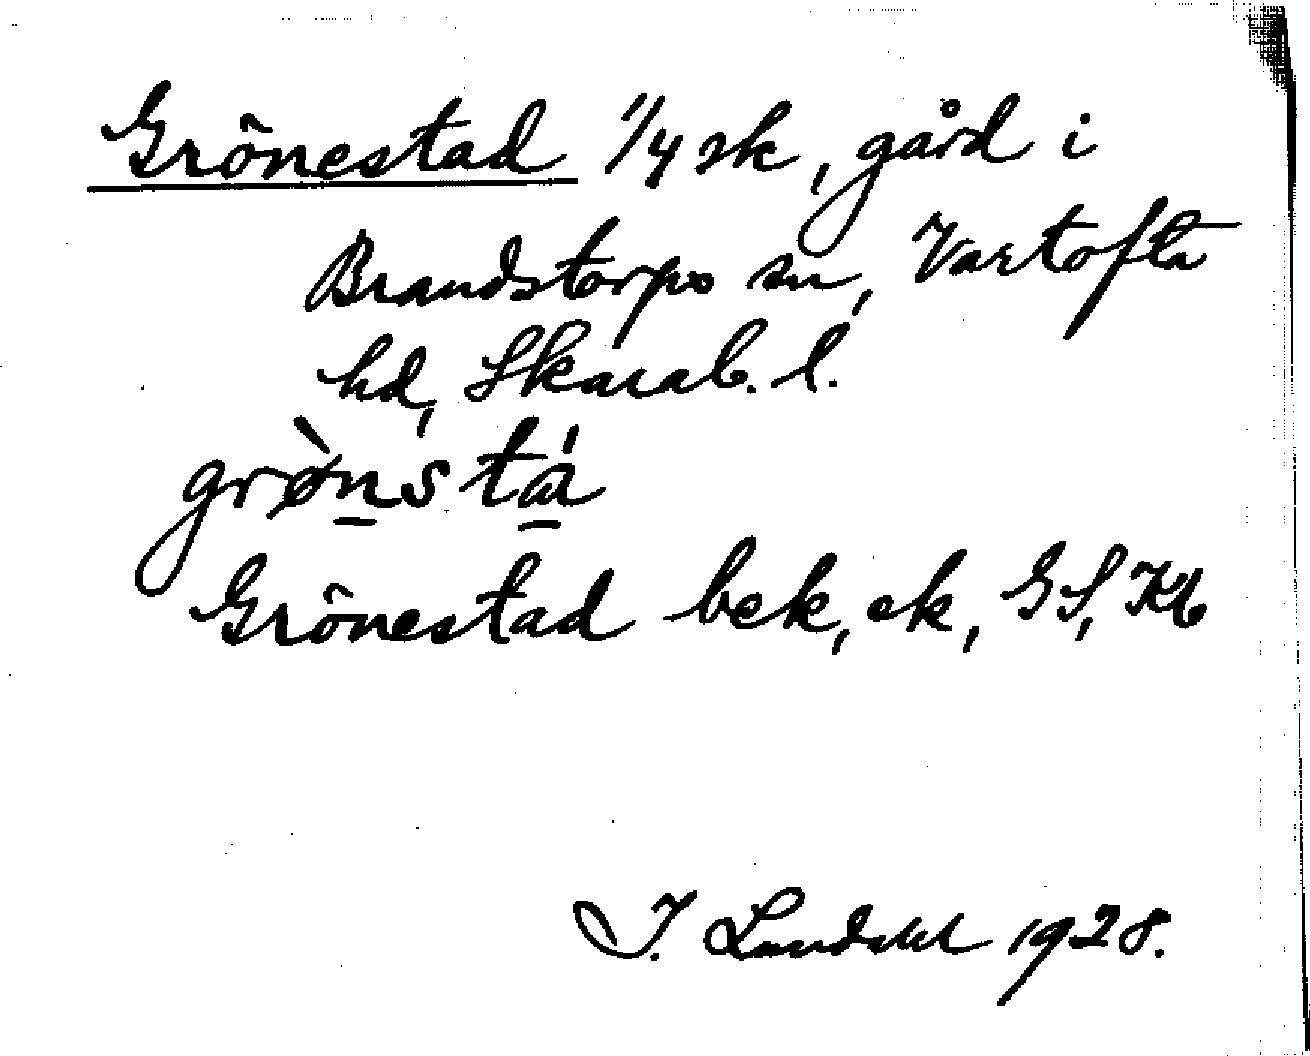 Grönestad 1/4 sk, gård i
Brandstorps sn, Vartofta
hd, Skarab. l.
grø̀nsta
Grönestad bek, ek, GS, Kb
I. Lundahl 1928.